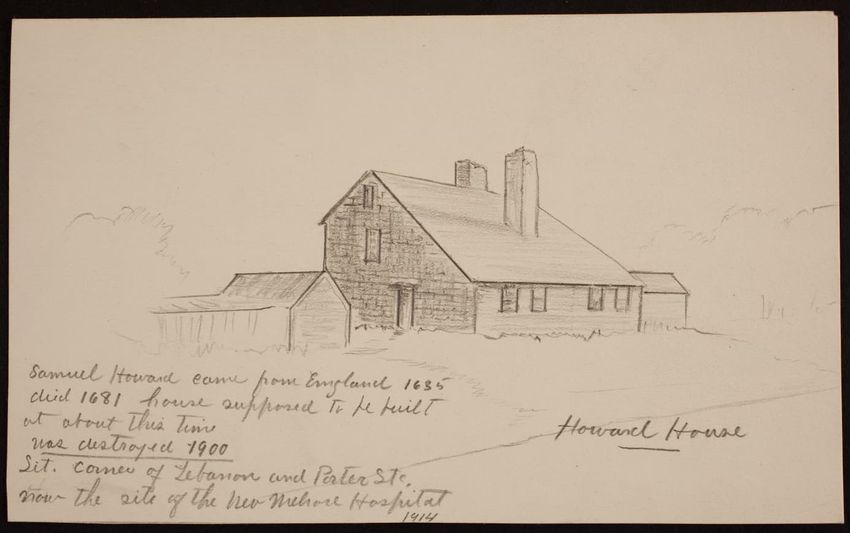 Samuel Howard came from England 1635
died 1681 house supposed to be built
at about this time
was destroyed 1900
Sit. corner of Lebanon and Porter Sts.
now the site of the New Melrose Hospital
1914
Howard House